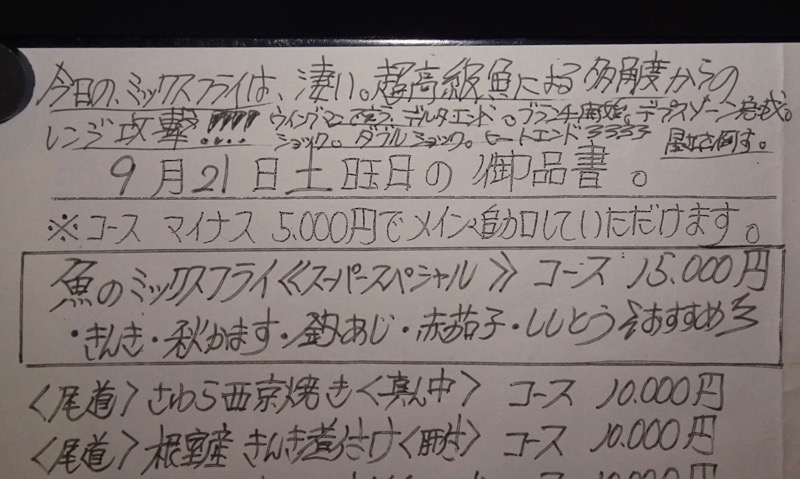 今日の、ミックスフライは、凄い。超高級魚による多角度からの
レンジ攻撃!!!! ウイングマン デルタエンド。ブランチ開始。デプスゾーン完成。
ショック。ダブルショック。ヒートエンド 倒す。
9月21日土旺日の御品書。
※コース マイナス 5.000円でメイン追加していただけます。
魚のミックスフライ《スーパースペシャル》 コース 15.000円
・きんき・秋かます・釣あじ・赤茄子・ししとう おすすめ
〈尾道〉さわら西京焼き〈真ん中〉 コース 10.000円
〈尾道〉根室産 きんき煮付け〈肝付〉 コース 10.000円
コース 10.000円